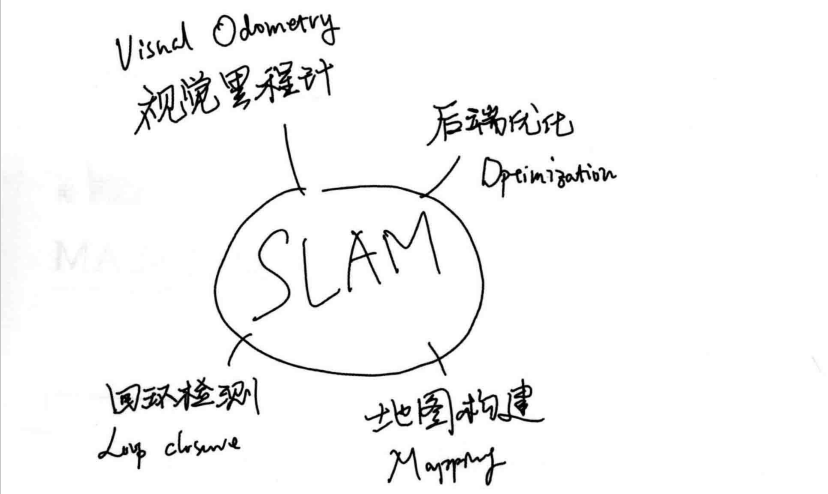 Visual Odometry
视觉里程计
后端优化
Optimization
SLAM
回环检测
Loop closure
地图构建
Mapping